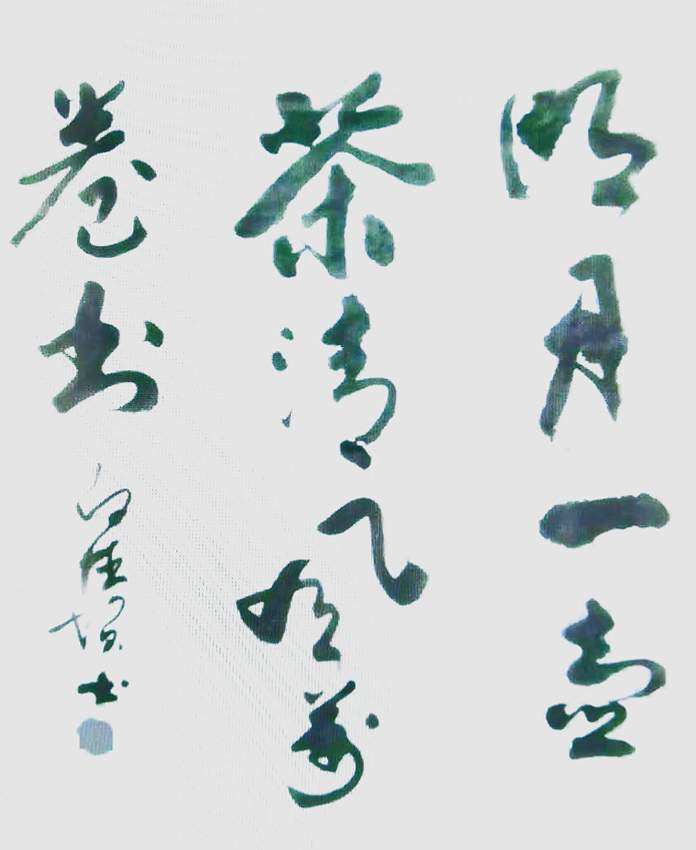 明月一壶
茶清风万
卷书
书